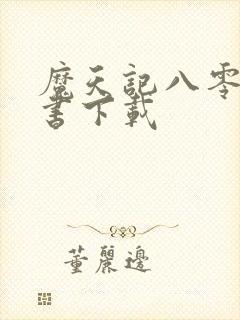 魔天記八零
書下載
董麗邊